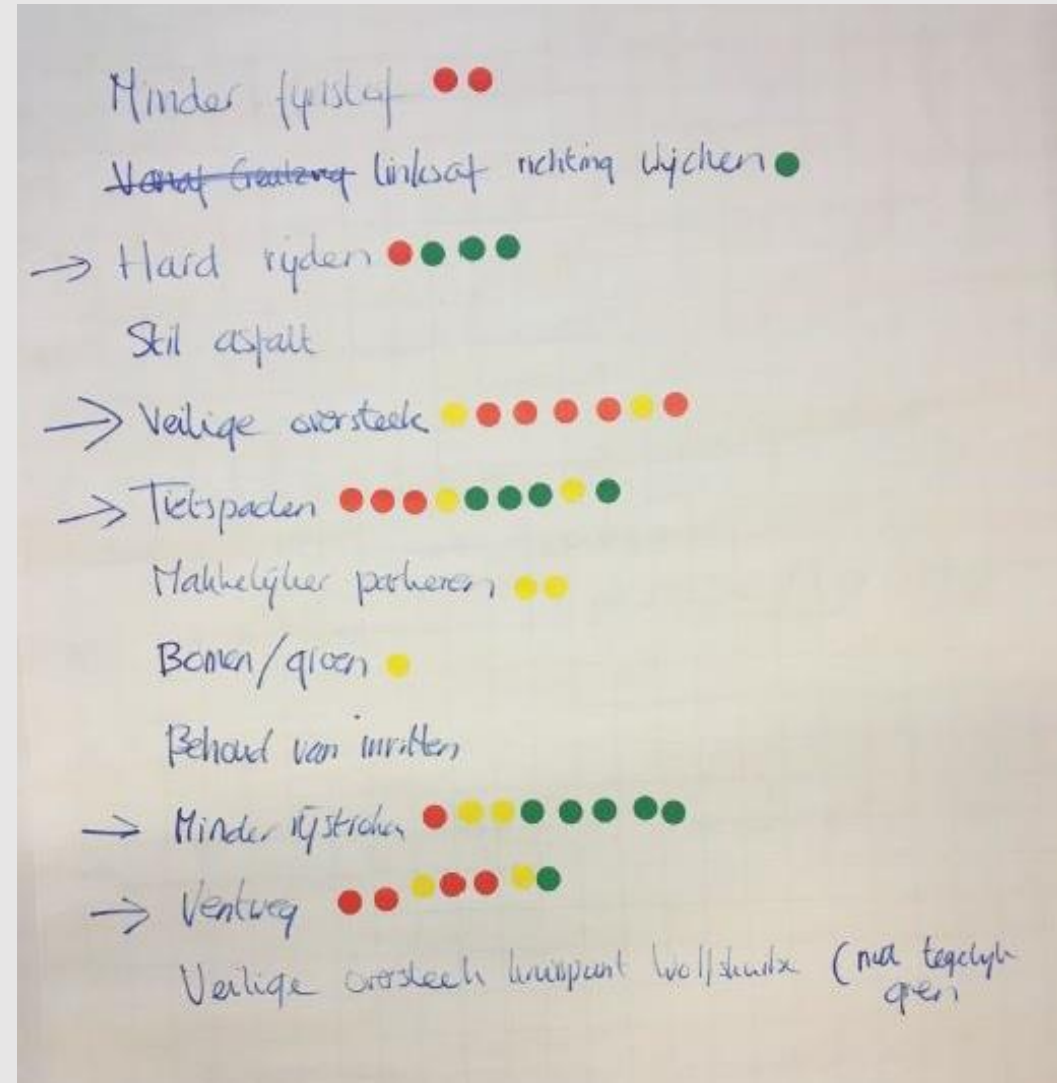 Minder fijnstof
Vanaf Graafseweg linksaf richting Wijchen
→ Hard rijden
Stil asfalt
→ Veilige oversteek
→ Fietspaden
Makkelijker parkeren
Bomen/groen
Behoud van inritten
→ Minder rijstroken
→ Ventweg
Veilige oversteek kruispunt (niet tegelijk
groen